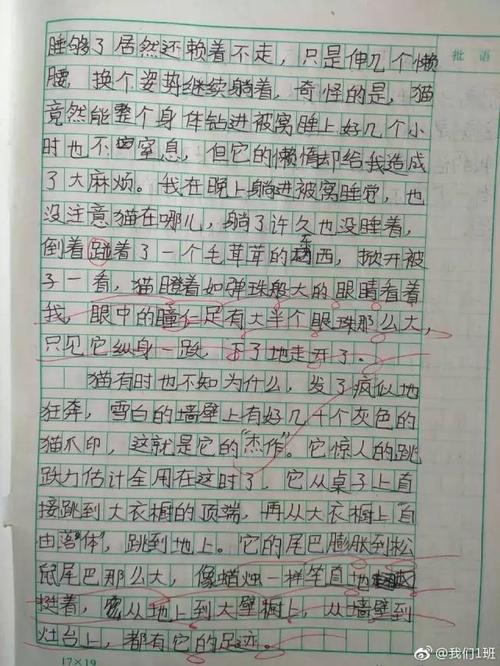 批语
睡够了居然还赖着不走，只是伸几个懒
腰，换个姿势继续躺着，奇怪的是，猫
竟然能整个身体钻进被窝睡上好几个小
时也不窒息，但它的懒惰却给我造成
了大麻烦。我在晚上躺进被窝睡觉，也
没注意猫在哪儿，躺了许久也没睡着，
倒着碰着了一个毛茸茸的东西，掀开被
子一看，猫瞪着如弹珠般大的眼睛看着
我，眼中的瞳仁足有大半个眼珠那么大，
只见它纵身一跃，下了地走开了。
猫有时也不知为什么，发了疯似地
狂奔，雪白的墙壁上有好几十个灰色的
猫爪印，这就是它的“杰作”。它惊人的跳
跃力估计全用在这时了，它从桌子上直
接跳到大衣橱的顶端，再从大衣橱上“自
由落体”，跳到地上。它的尾巴膨胀到松
鼠尾巴那么大，像蜡烛一样“笔直地
挺着，从地上到大壁橱上，从墙壁到
灶台上，都有它的足迹。
17×19
@我们1班